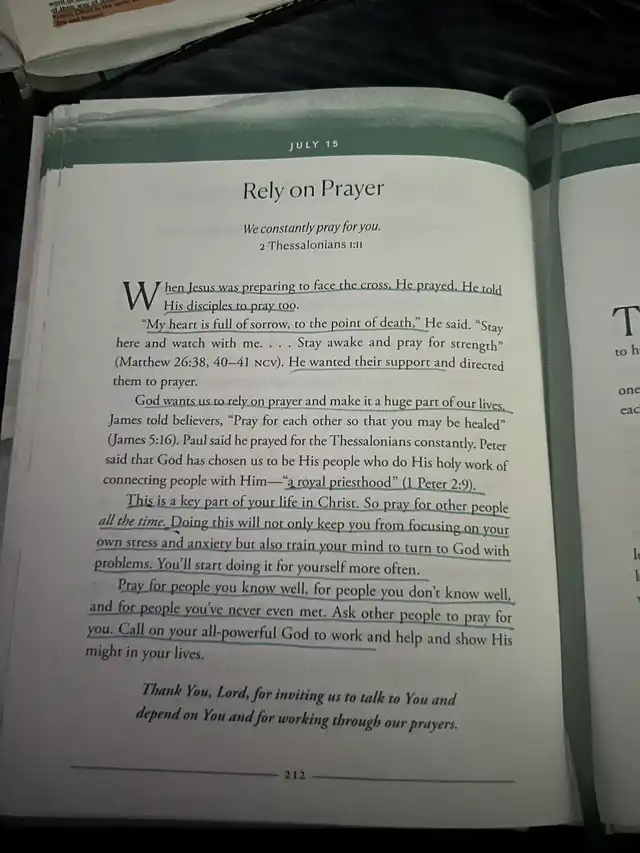 JULY 15
Rely on Prayer
We constantly pray for you.
2 Thessalonians 1:11
When Jesus was preparing to face the cross, He prayed. He told
His disciples to pray too.
“My heart is full of sorrow, to the point of death,” He said. “Stay
here and watch with me. . . . Stay awake and pray for strength”
(Matthew 26:38, 40–41 NCV). He wanted their support and directed
them to prayer.
God wants us to rely on prayer and make it a huge part of our lives.
James told believers, “Pray for each other so that you may be healed”
(James 5:16). Paul said he prayed for the Thessalonians constantly. Peter
said that God has chosen us to be His people who do His holy work of
connecting people with Him—“a royal priesthood” (1 Peter 2:9).
This is a key part of your life in Christ. So pray for other people
all the time. Doing this will not only keep you from focusing on your
own stress and anxiety but also train your mind to turn to God with
problems. You’ll start doing it for yourself more often.
Pray for people you know well, for people you don’t know well,
and for people you’ve never even met. Ask other people to pray for
you. Call on your all-powerful God to work and help and show His
might in your lives.
Thank You, Lord, for inviting us to talk to You and
depend on You and for working through our prayers.
212
T
to h
one
eac